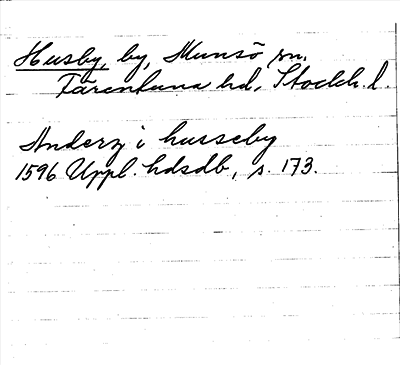 Husby, by, Munsö sn,
Färentuna hd, Stockh. l.
Anderz i husseby
1596 Uppl. hdsdb, s. 173.